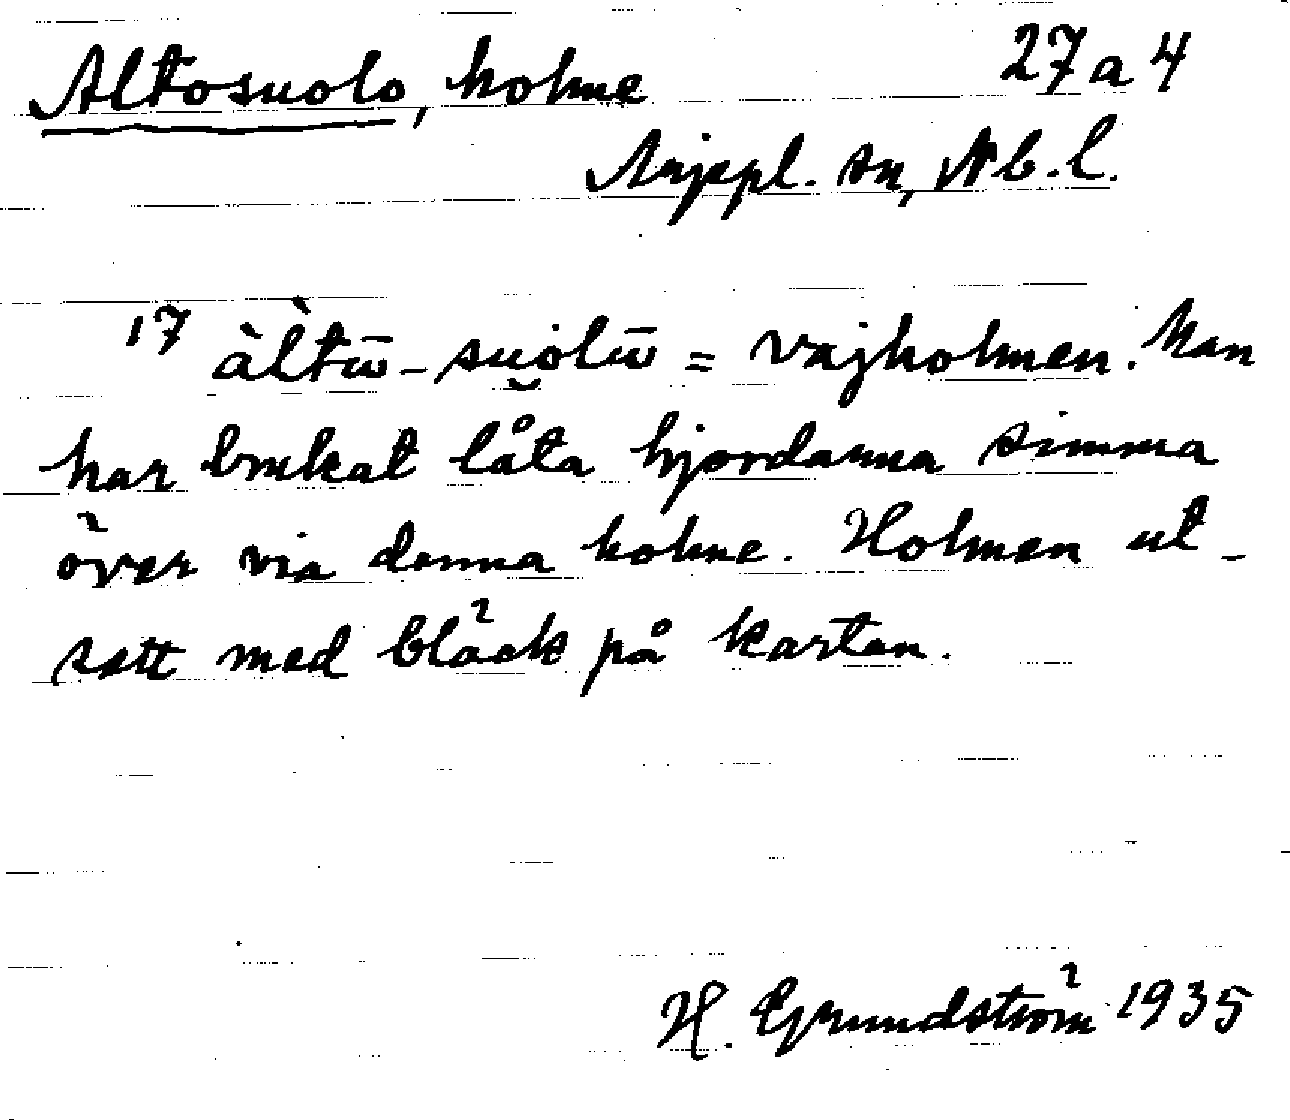 Altosuolo, holme 27a4
Arjepl. sn, Nb.l.
17 àl̀tω̄-suo̮lω̄ = vajholmen. Man
har brukat låta hjordarna simma
över via denna holme. Holmen ut-
satt med bläck på kartan.
H. Grundström 1935